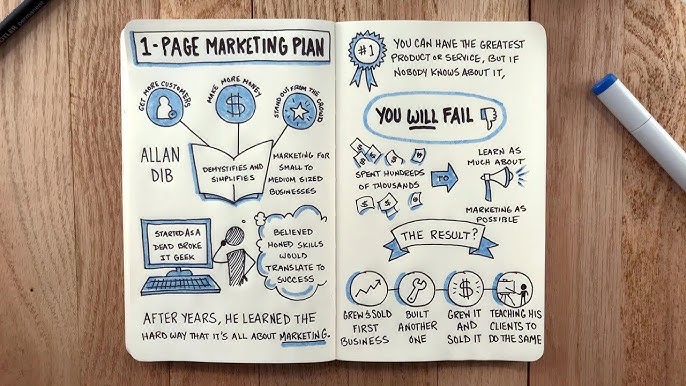 1-PAGE MARKETING PLAN
GET MORE CUSTOMERS
MAKE MORE MONEY
$
STAND OUT FROM THE CROWD
ALLAN
DIB
DEMYSTIFIES AND
SIMPLIFIES
MARKETING FOR
SMALL TO
MEDIUM SIZED
BUSINESSES
STARTED AS A
DEAD BROKE
IT GEEK
BELIEVED
HONED SKILLS
WOULD
TRANSLATE TO
SUCCESS
AFTER YEARS, HE LEARNED THE
HARD WAY THAT IT'S ALL ABOUT MARKETING.
#1
YOU CAN HAVE THE GREATEST
PRODUCT OR SERVICE, BUT IF
NOBODY KNOWS ABOUT IT,
YOU WILL FAIL
SPENT HUNDREDS
OF THOUSANDS
TO
LEARN AS
MUCH ABOUT
MARKETING AS
POSSIBLE
THE RESULT?
GREW & SOLD
FIRST
BUSINESS
BUILT
ANOTHER
ONE
$
GREW IT
AND
SOLD IT
TEACHING HIS
CLIENTS TO
DO THE SAME